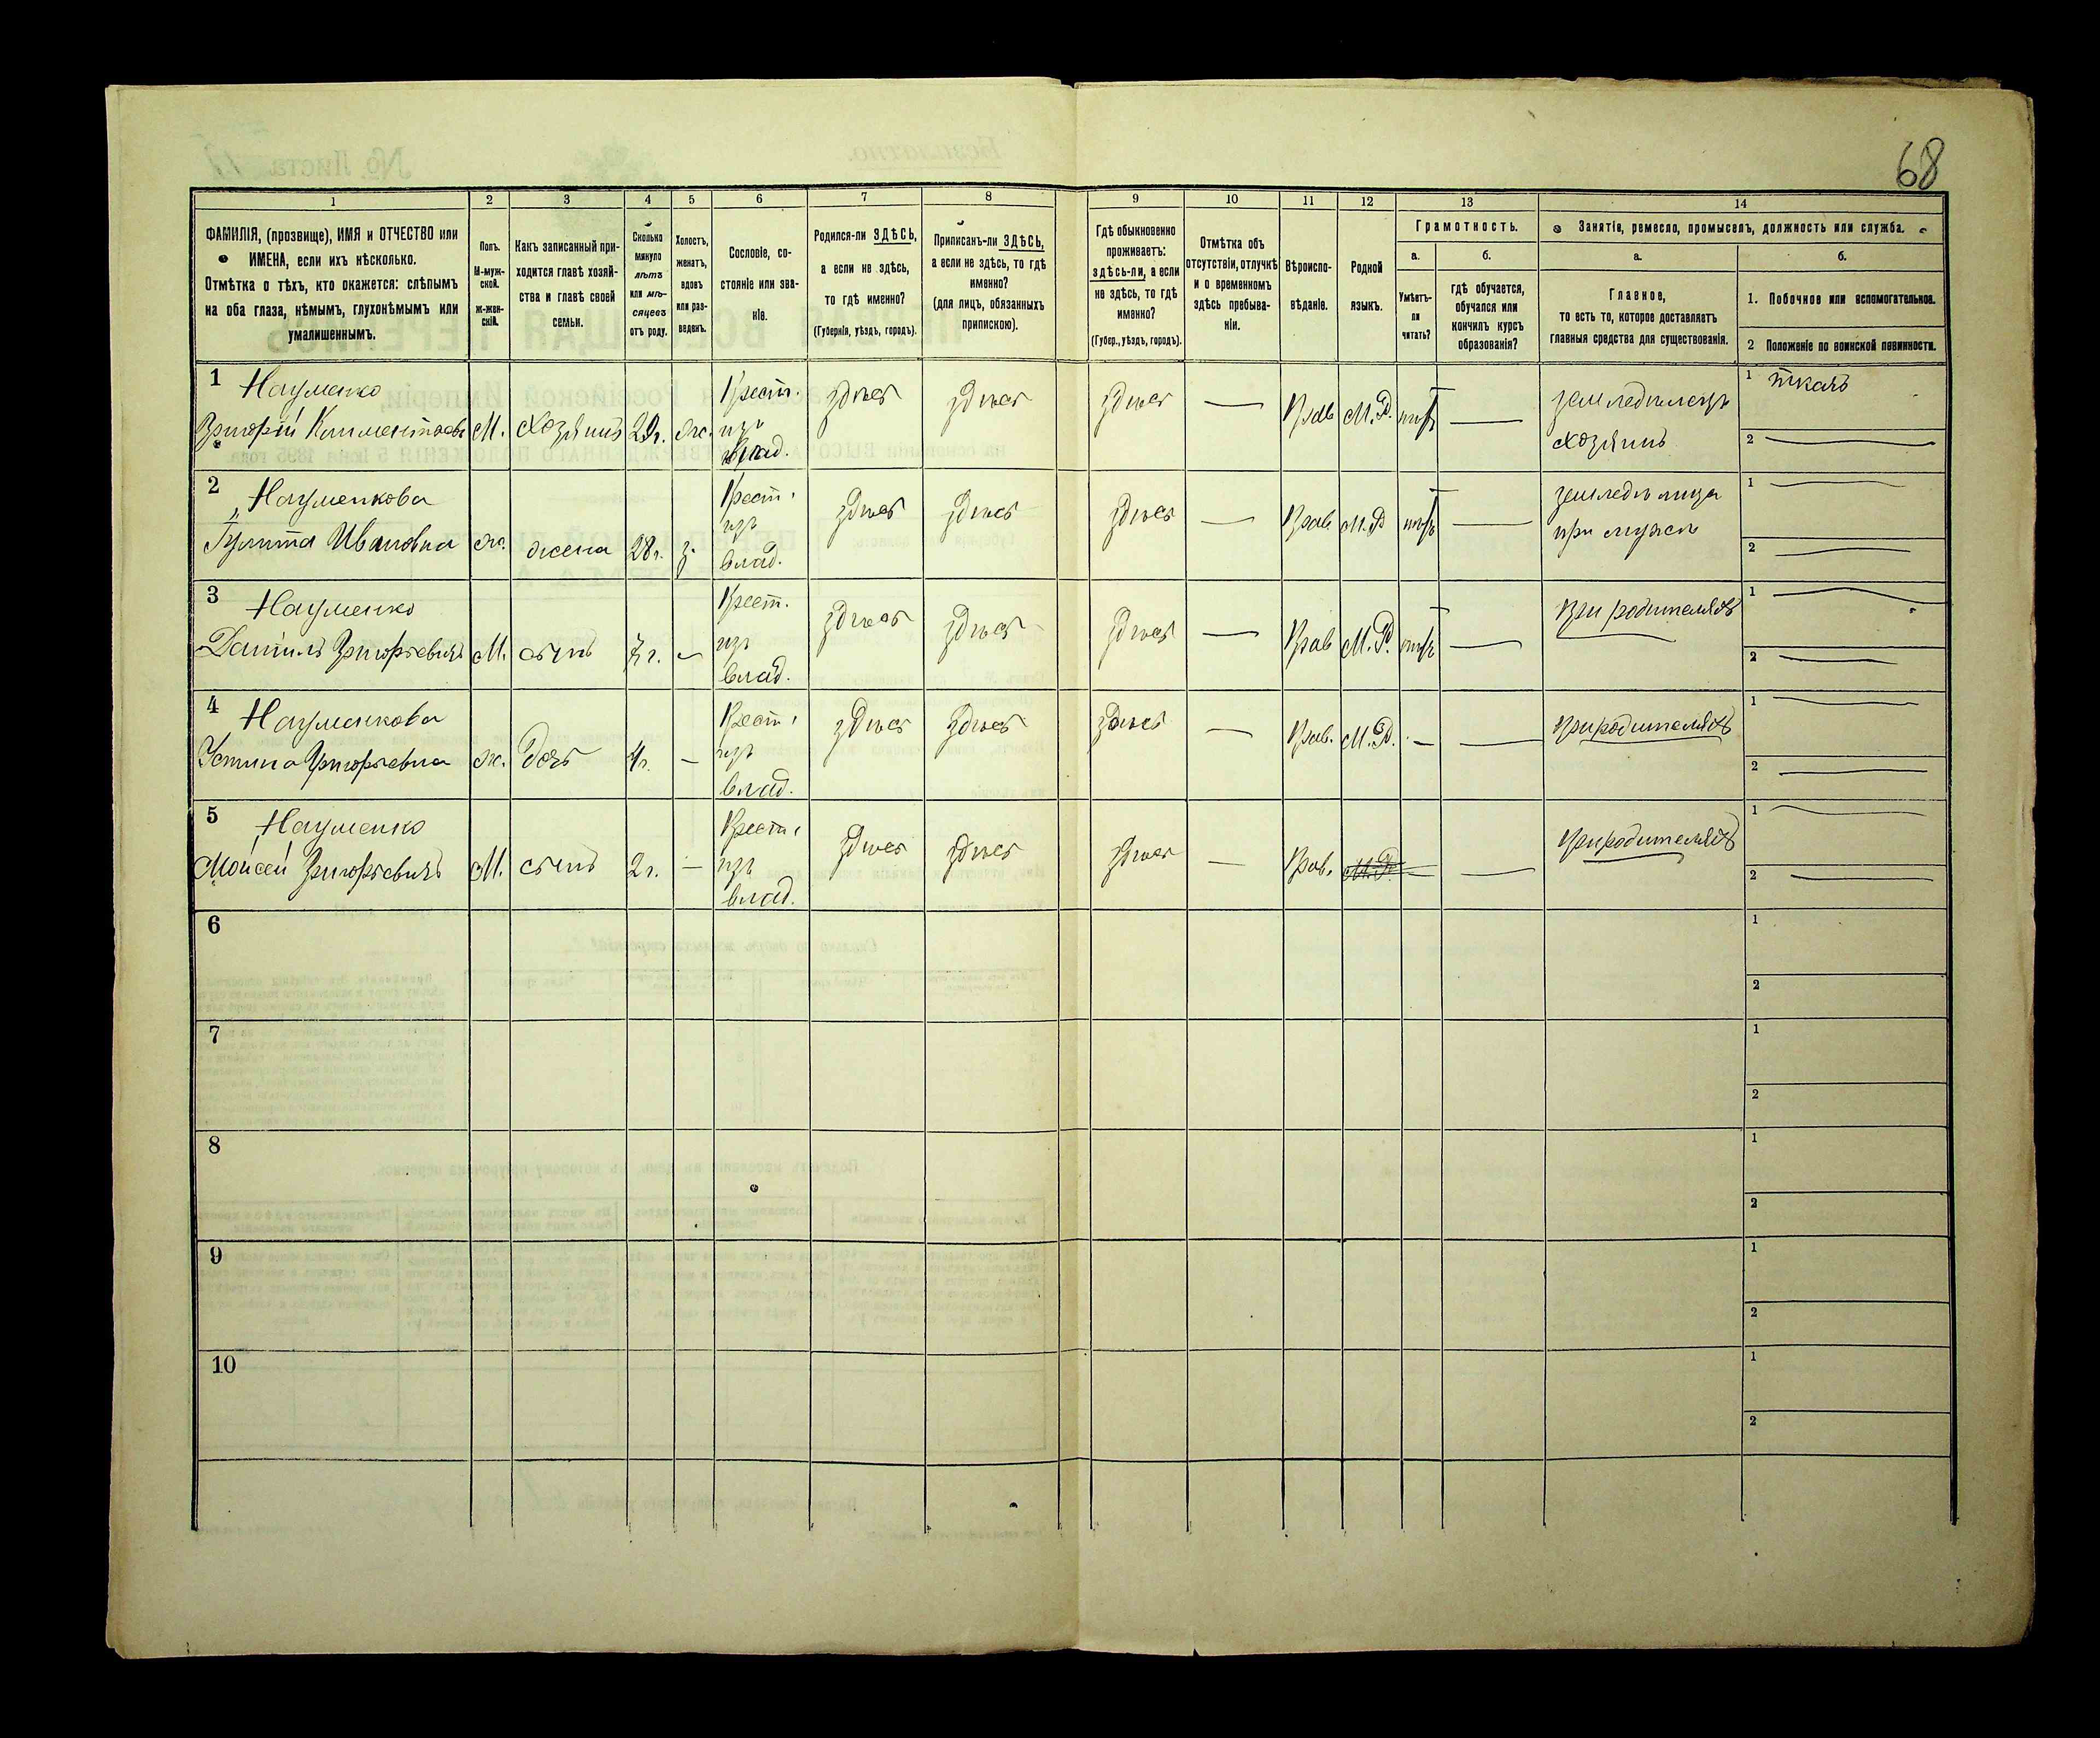 68
1 2 3 4 5 6 7 8 9 10 11 12 13 14
ФАМИЛІЯ, (прозвище), ИМЯ и ОТЧЕСТВО или
ИМЕНА, если ихъ нѣсколько.
Отмѣтка о тѣхъ, кто окажется: слѣпымъ
на оба глаза, нѣмымъ, глухонѣмымъ или
умалишеннымъ.
Полъ.
М-муж-
ской.
ж-жен-
скій.
Какъ записанный при-
ходится главѣ хозяй-
ства и главѣ своей
семьи.
Сколько
минуло
лѣтъ
или мѣ-
сяцевъ
отъ роду.
Холостъ,
женатъ,
вдовъ
или раз-
веденъ.
Сословіе, со-
стояніе или зва-
ніе.
Родился-ли ЗДѢСЬ,
а если не здѣсь,
то гдѣ именно?
(Губернія, уѣздъ, городъ).
Приписанъ-ли ЗДѢСЬ,
а если не здѣсь, то гдѣ
именно?
(для лицъ, обязанныхъ
припискою).
Гдѣ обыкновенно
проживаетъ:
здѣсь-ли, а если
не здѣсь, то гдѣ
именно?
(Губер., уѣздъ, городъ).
Отмѣтка объ
отсутствіи, отлучкѣ
и о временномъ
здѣсь пребыва-
ніи.
Вѣроиспо-
вѣданіе.
Родной
языкъ.
Грамотность.
а.
Умѣетъ-
ли
читать?
б.
гдѣ обучается,
обучался или
кончилъ курсъ
образованія?
Занятіе, ремесло, промыселъ, должность или служба.
а.
Главное,
то есть то, которое доставляетъ
главныя средства для существованія.
б.
1. Побочное или вспомогательное.
2 Положеніе по воинской повинности.
1 Науменко Крест. здѣсь здѣсь здѣсь — Прав М.Р. нѣтъ — земледѣлецъ 1 ткачъ
Григорій Климентьевъ М. хозяинъ 29г. ж. изъ хозяинъ 2 —
влад.
2 Науменкова Крест. здѣсь здѣсь здѣсь — Прав М.Р нѣтъ — 1 —
Ивановна ж. жена 28г. з. изъ при мужѣ 2 —
влад.
3 Науменко Крест. здѣсь здѣсь здѣсь — Прав М.Р. нѣтъ — При родителяхъ 1 —
Даніилъ Григорьевичъ М. сынъ 7г. — изъ 2 —
влад.
4 Науменкова Крест. здѣсь здѣсь здѣсь — Прав. М.Р. — — При родителяхъ 1 —
Устина Григорьевна ж. дочь 4г. — изъ 2 —
влад.
5 Науменко Крест. здѣсь здѣсь здѣсь — Прав. М.Р. — — При родителяхъ 1 —
Мойсей Григорьевичъ М. сынъ 2г. — изъ 2 —
влад.
6 1
2
7 1
2
8 1
2
9 1
2
10 1
2